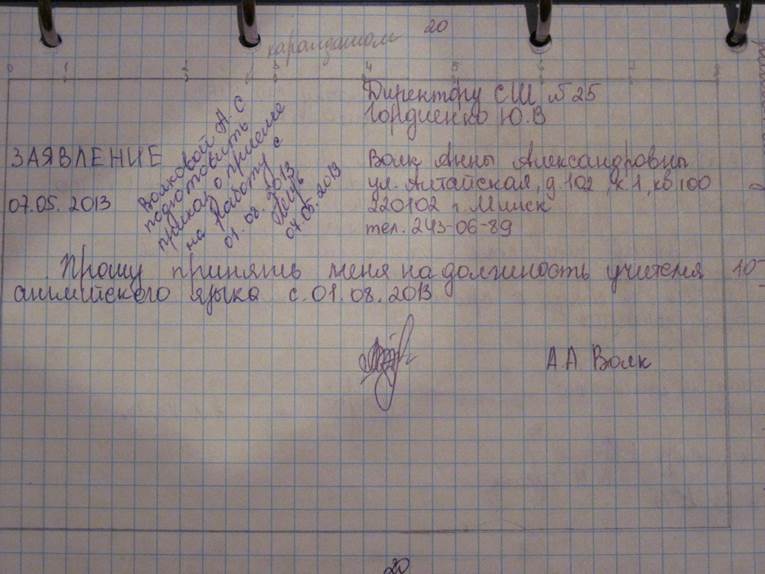 20
карандашом
0 1 2 3 4 5 6 7 8
Директору СШ №25
Гордиенко Ю.В
ЗАЯВЛЕНИЕ
07.05.2013
Волковой А.С
подготовить
приказ о приёме
на работу с
01.08.2013
07.05.2013
Волк Анны Александровны
ул. Алтайская, д 102, к.1, кв 100
220102 г Минск
тел. 243-06-89
Прошу принять меня на должность учителя
английского языка с 01.08.2013
10
А.А Волк
20